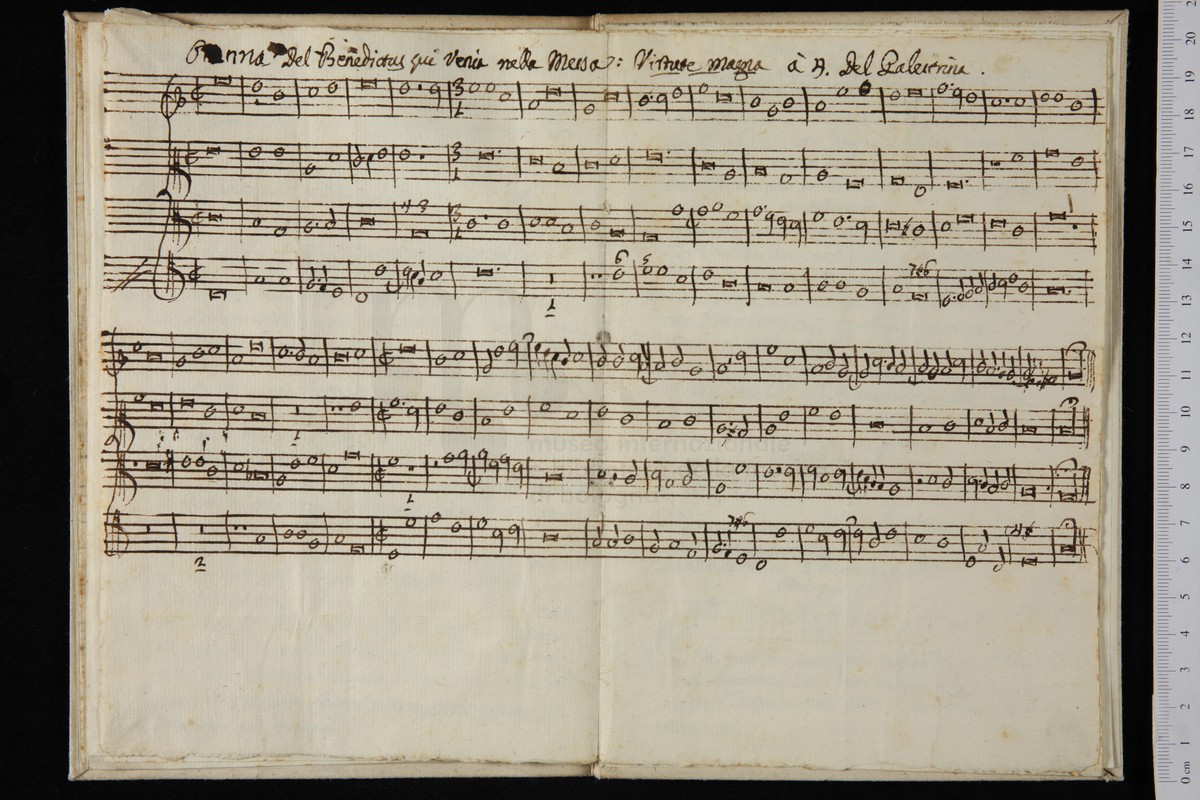 Osanna Del Benedictus qui Venis nella Messa: Virtute magna à 4. Del Palestrina.
3 1
3 1
4 3
3 1
6 5
1
7 6
museo internazionale
1
1
7 6
2
0 cm 1 2 3 4 5 6 7 8 9 10 11 12 13 14 15 16 17 18 19 20